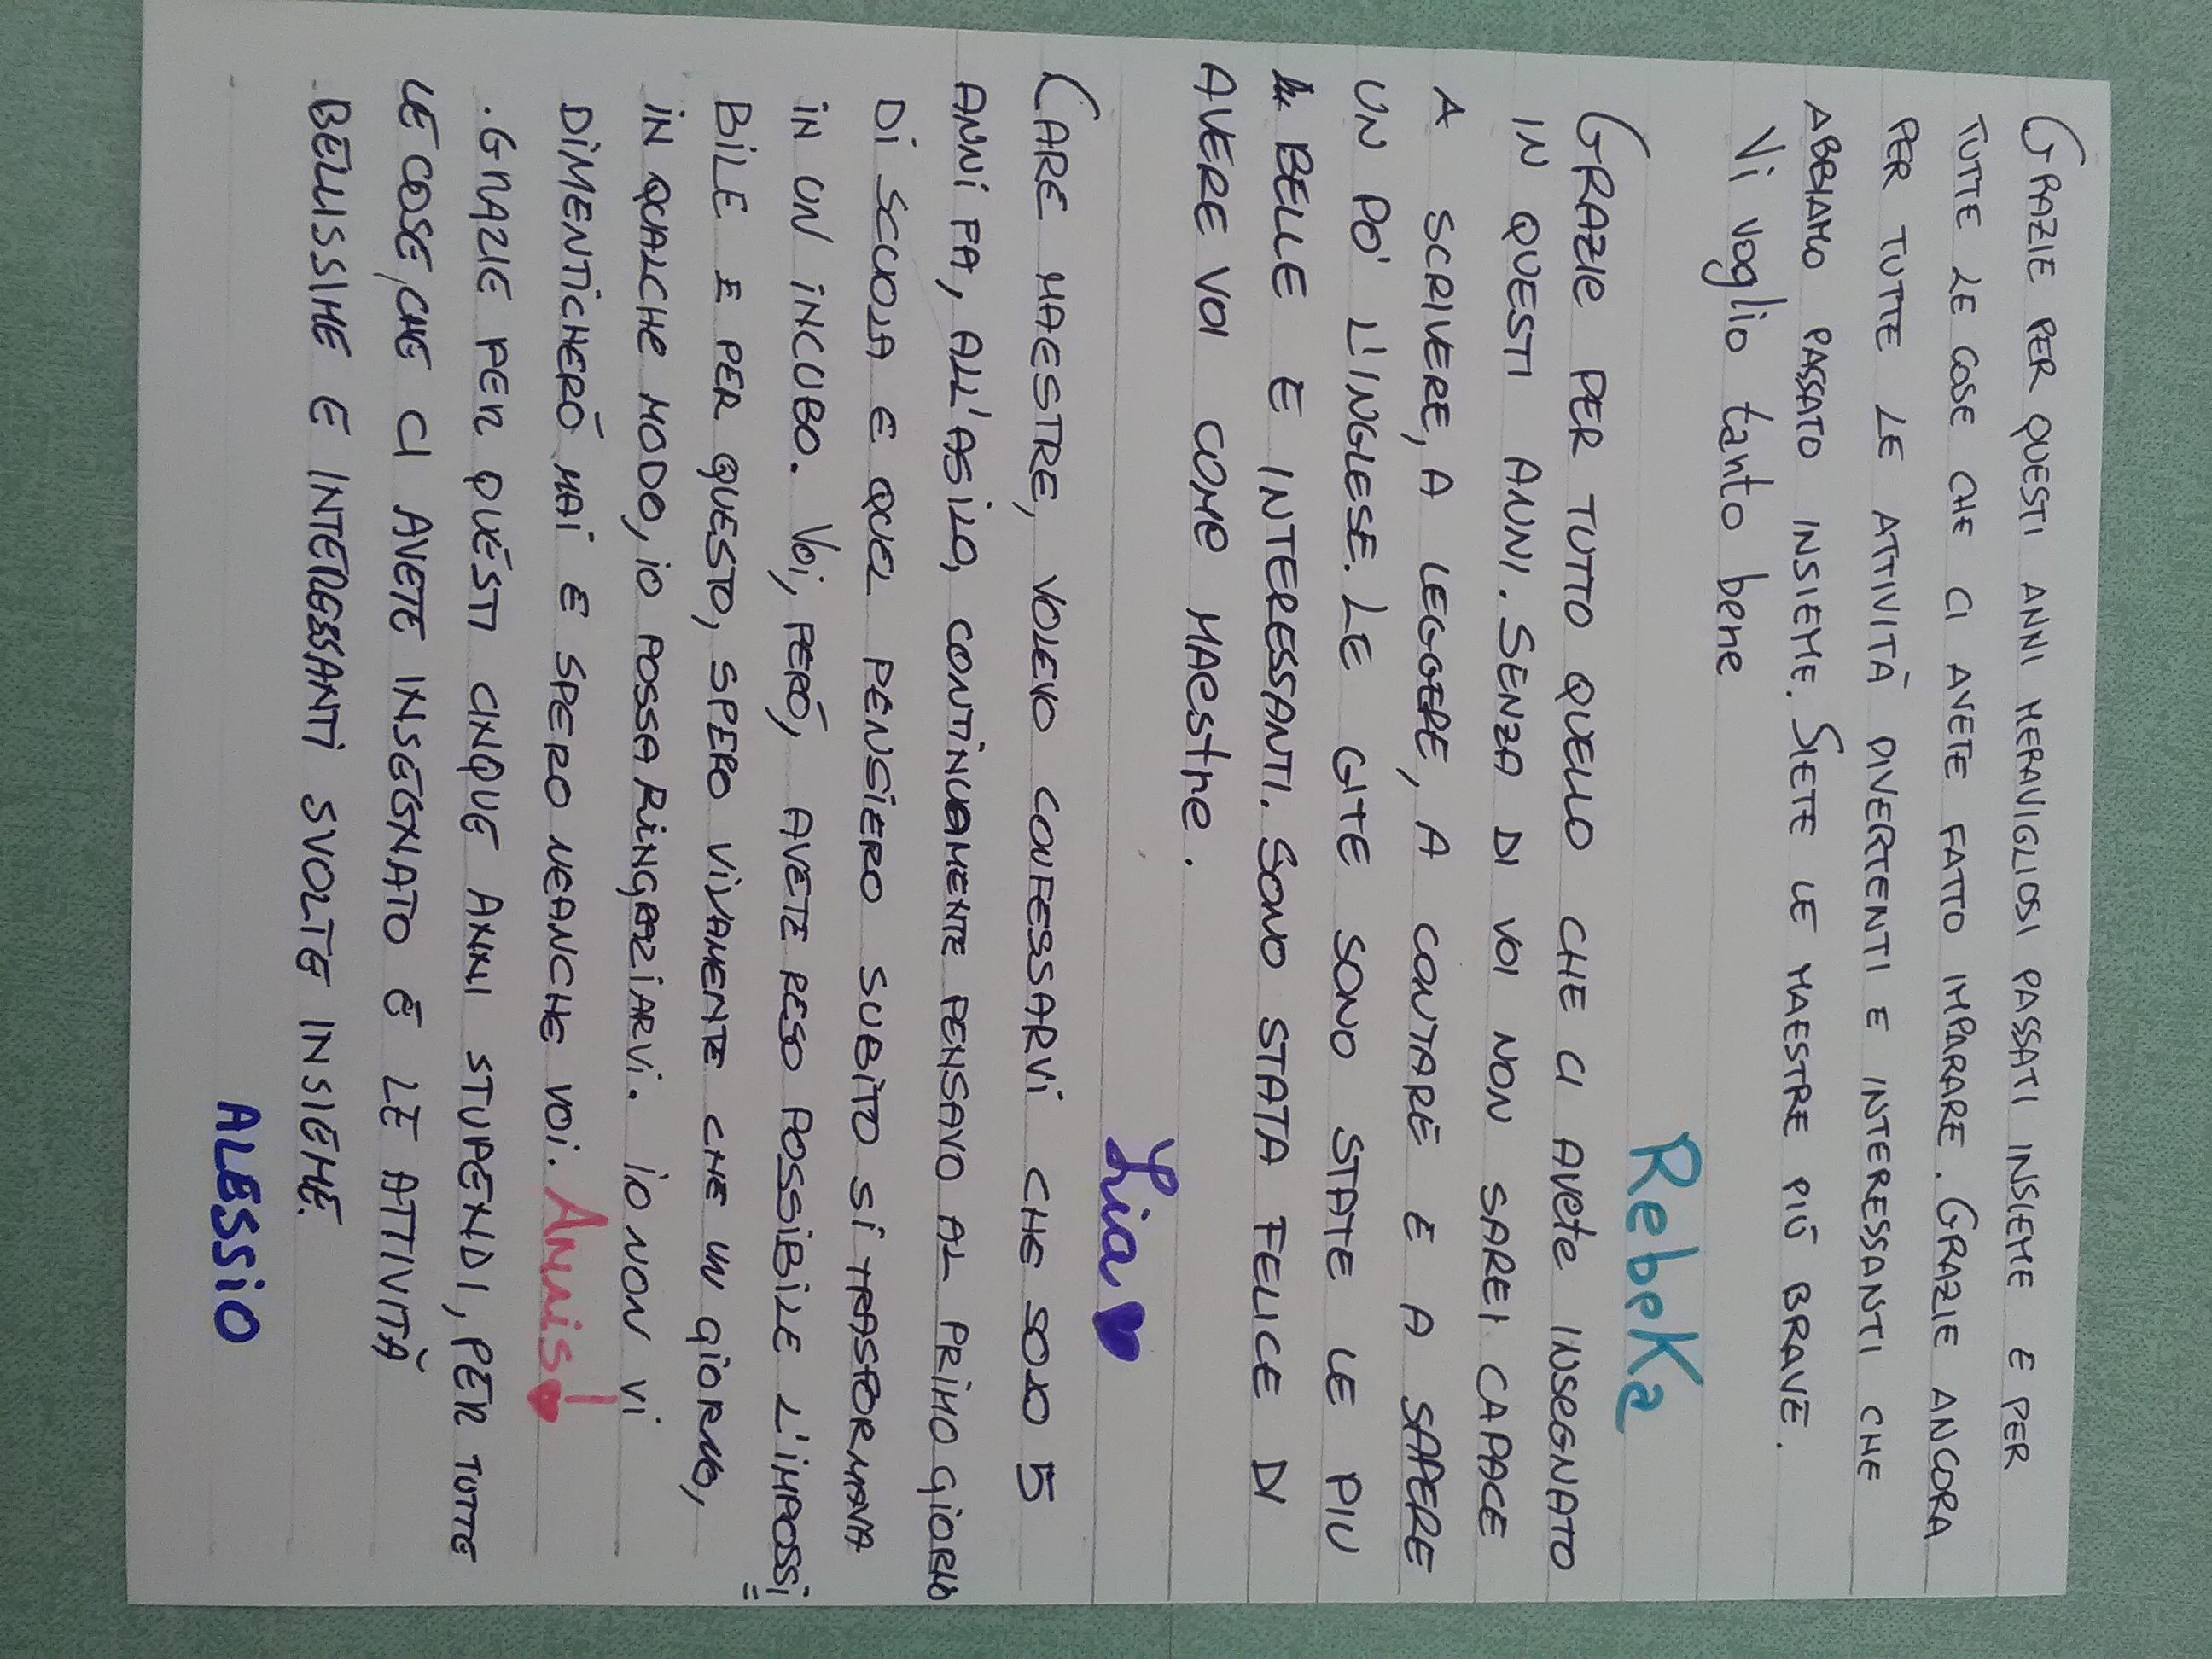 GRAZIE PER QUESTI ANNI MERAVIGLIOSI PASSATI INSIEME E PER
TUTTE LE COSE CHE CI AVETE FATTO IMPARARE. GRAZIE ANCORA
PER TUTTE LE ATTIVITÀ DIVERTENTI E INTERESSANTI CHE
ABBIAMO PASSATO INSIEME. SIETE LE MAESTRE PIÙ BRAVE.
Vi voglio tanto bene
Rebeka
GRAZIE PER TUTTO QUELLO CHE CI AVETE INSEGNATO
IN QUESTI ANNI. SENZA DI VOI NON SAREI CAPACE
A SCRIVERE, A LEGGERE, A CONTARE E A SAPERE
UN PO' L'INGLESE. LE GITE SONO STATE LE PIU
BELLE E INTERESSANTI. SONO STATA FELICE DI
AVERE VOI COME MAESTRE.
Lia
CARE MAESTRE, VOLEVO CONFESSARVI CHE SOLO 5
ANNI FA, ALL'ASILO, CONTINUAMENTE PENSAVO AL PRIMO GIORNO
DI SCUOLA E QUEL PENSIERO SUBITO SI TRASFORMAVA
IN UN INCUBO. VOI, PERÓ, AVETE RESO POSSIBILE L'IMPOSSI
BILE E PER QUESTO, SPERO VIVAMENTE CHE UN GIORNO,
IN QUALCHE MODO, IO POSSA RINGRAZIARVI. IO NON VI
DIMENTICHERÓ MAI E SPERO NEANCHE VOI. Annis!
.GRAZIE PER QUESTI CINQUE ANNI STUPENDI, PER TUTTE
LE COSE, CHE CI AVETE INSEGNATO E LE ATTIVITÀ
BELLISSIME E INTERESSANTI SVOLTE INSIEME.
ALESSIO